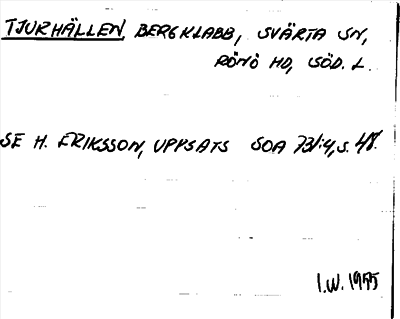 TJURHÄLLEN, BERGKLABB, SVÄRTA SN,
RÖNÖ HD, SÖD. L.
SE H. ERIKSSON, UPPSATS SOA 731:4, S. 48.
I.W. 1955